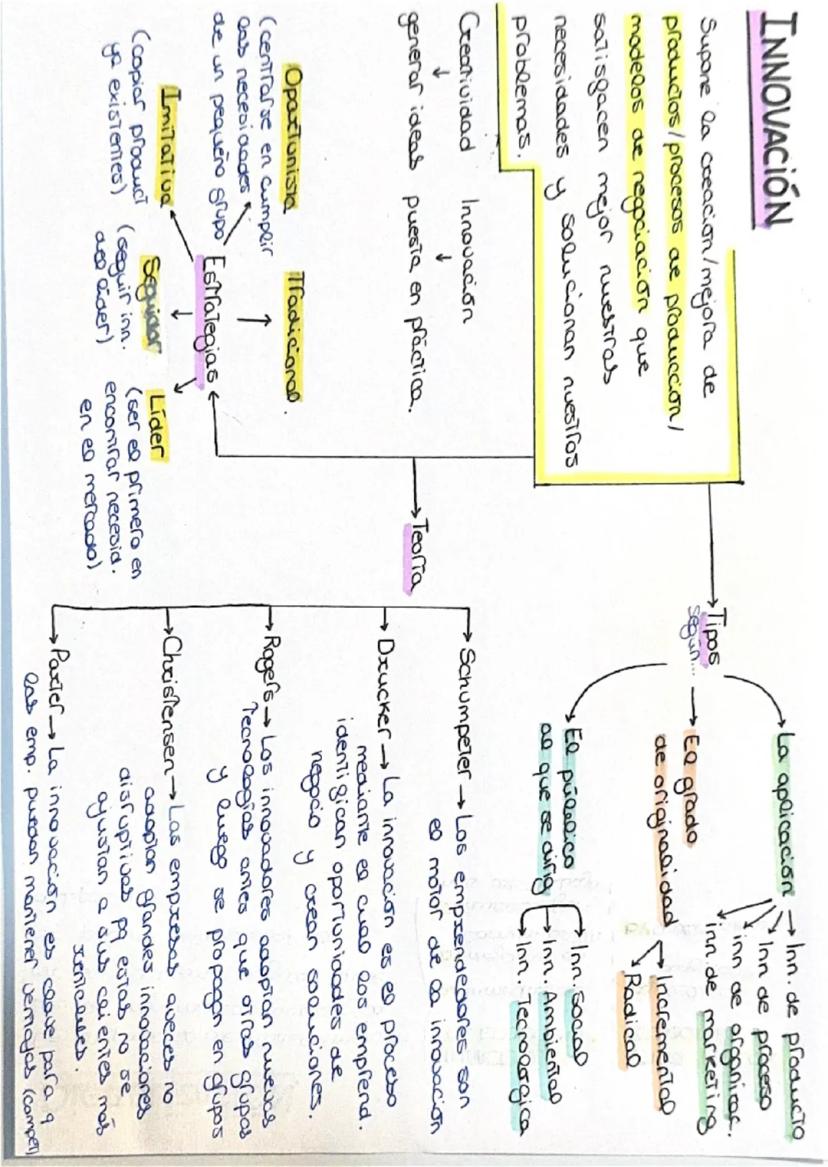 INNOVACIÓN
Supone la creación/mejora de
productos/procesos de producción/
modelos de negociación que
satisfacen mejor nuestras
necesidades y solucionan nuestros
problemas.
Creatividad
generar ideas
Innovación
puesta en práctica.
Tipos
según...
La aplicación
Inn. de producto
Inn de proceso
inn de organizar.
Inn. de marketing
El grado
de originalidad
Incremental
Radical
El público
al que se dirig
Inn. Social
Inn. Ambiental
Inn. Tecnológica
Teoría
Schumpeter → Los emprendedores son
el motor de la innovación
Drucker → La innovación es el proceso
mediante el cual los emprend.
identifican oportunidades de
negocio y crean soluciones.
Rogers → Los innovadores adoptan nuevas
tecnologías antes que otros grupos
y luego se propagan en grupos
Christensen → Las empresas aveces no
adoptan grandes innovaciones
disruptivas pq estas no se
ajustan a sus clientes más
rentables.
Porter → La innovación es clave para q
las emp. puedan mantener ventajas (compet)
Estrategias
Oportunista
(centrarse en cumplir
las necesidades
de un pequeño grupo
Tradicional.
Imitativa
(copiar product
ya existentes)
Seguidor
(seguir inn.
del líder)
Líder
(ser el primero en
encontrar necesid.
en el mercado)